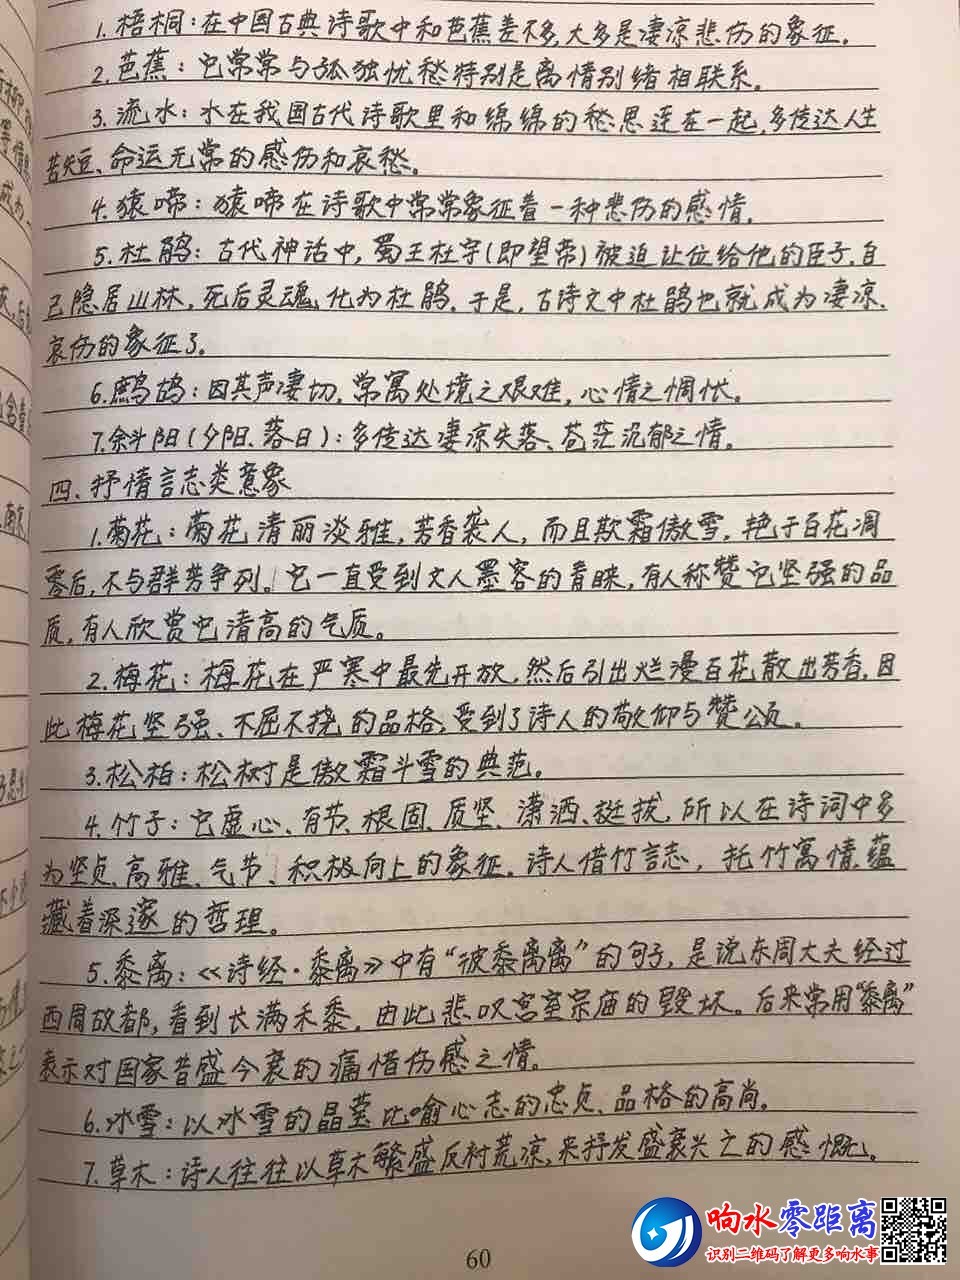 1.梧桐：在中国古典诗歌中和芭蕉差不多,大多是凄凉悲伤的象征。
2.芭蕉：它常常与孤独忧愁特别是离情别绪相联系。
3.流水：水在我国古代诗歌里和绵绵的愁思连在一起,多传达人生
苦短、命运无常的感伤和哀愁。
4.猿啼：猿啼在诗歌中常常象征着一种悲伤的感情。
5.杜鹃：古代神话中,蜀王杜宇(即望帝)被迫让位给他的臣子,自
己隐居山林,死后灵魂化为杜鹃。于是,古诗文中杜鹃也就成为凄凉、
哀伤的象征了。
6.鹧鸪：因其声凄切,常寓处境之艰难,心情之惆怅。
7.斜阳(夕阳、落日)：多传达凄凉失落、苍茫沉郁之情。
四、抒情言志类意象
1.菊花：菊花清丽淡雅,芳香袭人,而且欺霜傲雪,艳于百花凋
零后,不与群芳争列。它一直受到文人墨客的青睐,有人称赞它坚强的品
质,有人欣赏它清高的气质。
2.梅花：梅花在严寒中最先开放,然后引出烂漫百花散出芳香,因
此梅花坚强、不屈不挠的品格,受到了诗人的敬仰与赞颂。
3.松柏：松树是傲霜斗雪的典范。
4.竹子：它虚心、有节、根固、质坚、潇洒、挺拔,所以在诗词中多
为坚贞、高雅、气节、积极向上的象征。诗人借竹言志,托竹寓情,蕴
藏着深邃的哲理。
5.黍离：《诗经·黍离》中有“彼黍离离”的句子,是说东周大夫经过
西周故都,看到长满禾黍,由此悲叹宫室宗庙的毁坏。后来常用“黍离”
表示对国家昔盛今衰的痛惜伤感之情。
6.冰雪：以冰雪的晶莹比喻心志的忠贞、品格的高尚。
7.草木：诗人往往以草木繁盛反衬荒凉,来抒发盛衰兴亡的感慨。
60
响水零距离
识别二维码了解更多响水事